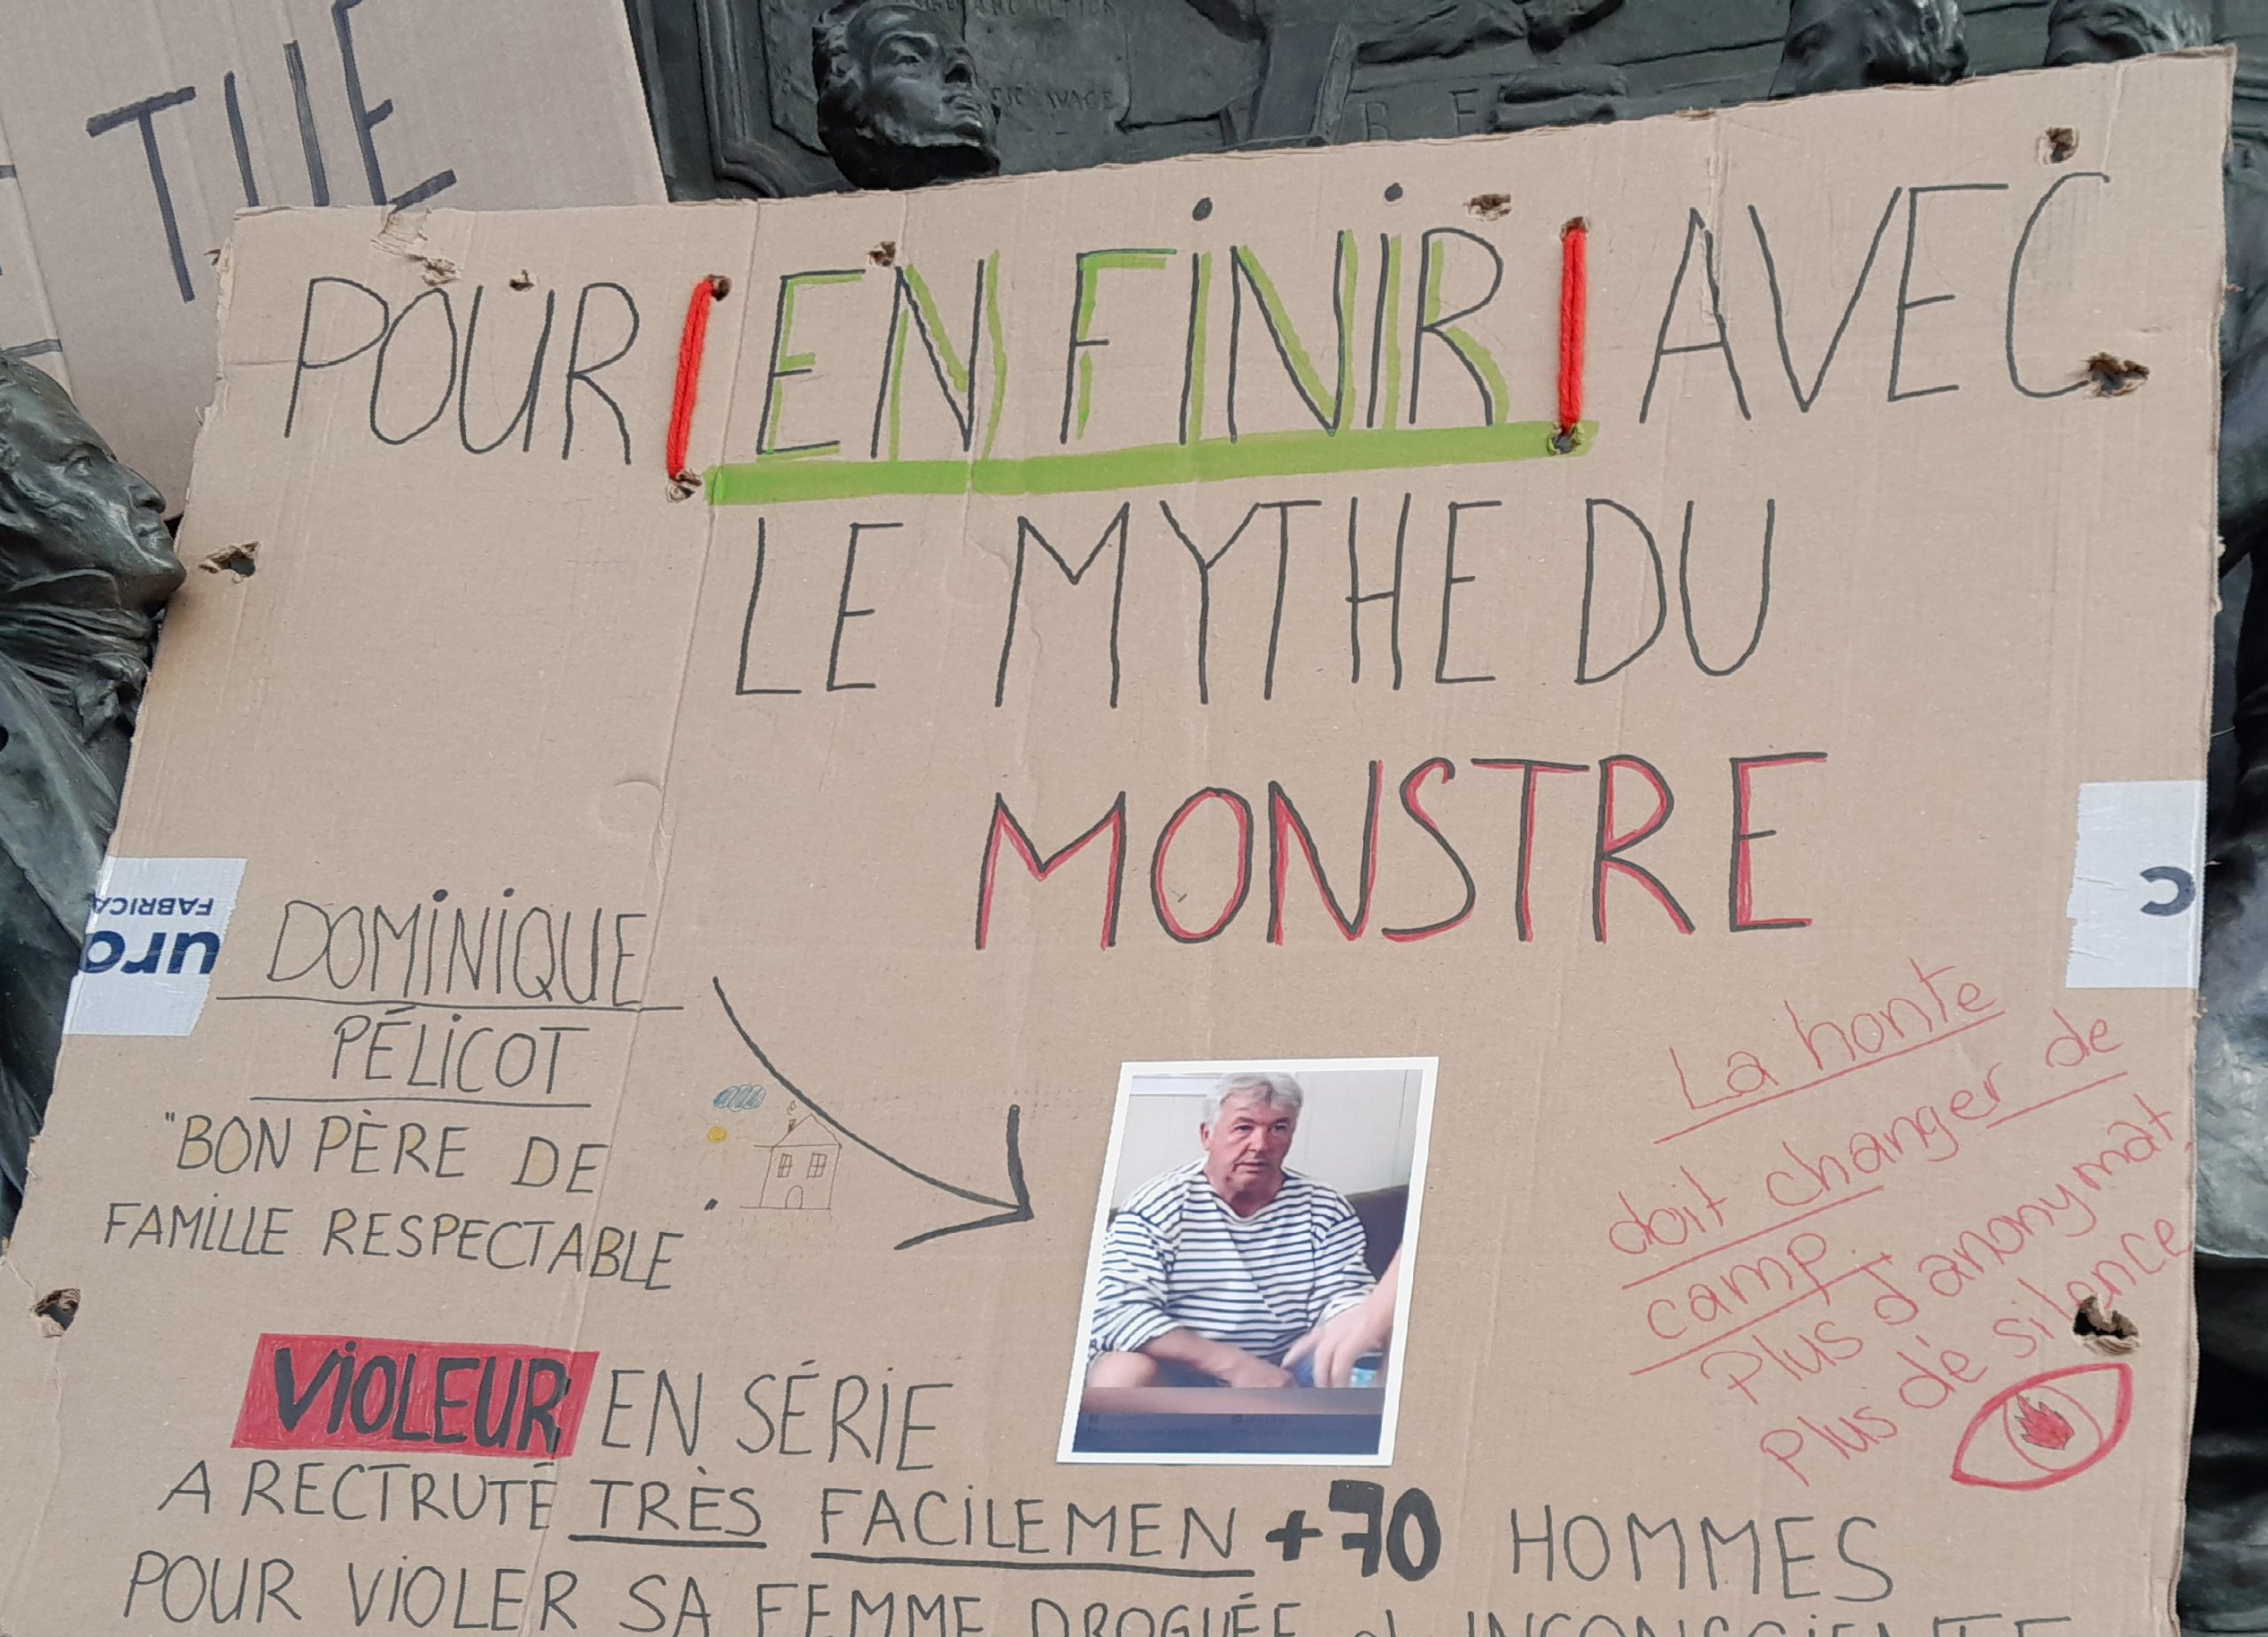 THE
POUR EN FINIR AVEC
LE MYTHE DU
MONSTRE
FABRICA
uro
C
DOMINIQUE
PÉLICOT
"BON PÈRE DE
FAMILLE RESPECTABLE"
VIOLEUR EN SÉRIE
A RECTRUTÉ TRÈS FACILEMEN +70 HOMMES
POUR VIOLER SA FEMME DROGUÉE et INCONSCIENTE
La honte
doit changer de
camp.
Plus d'anonymat.
Plus de silence